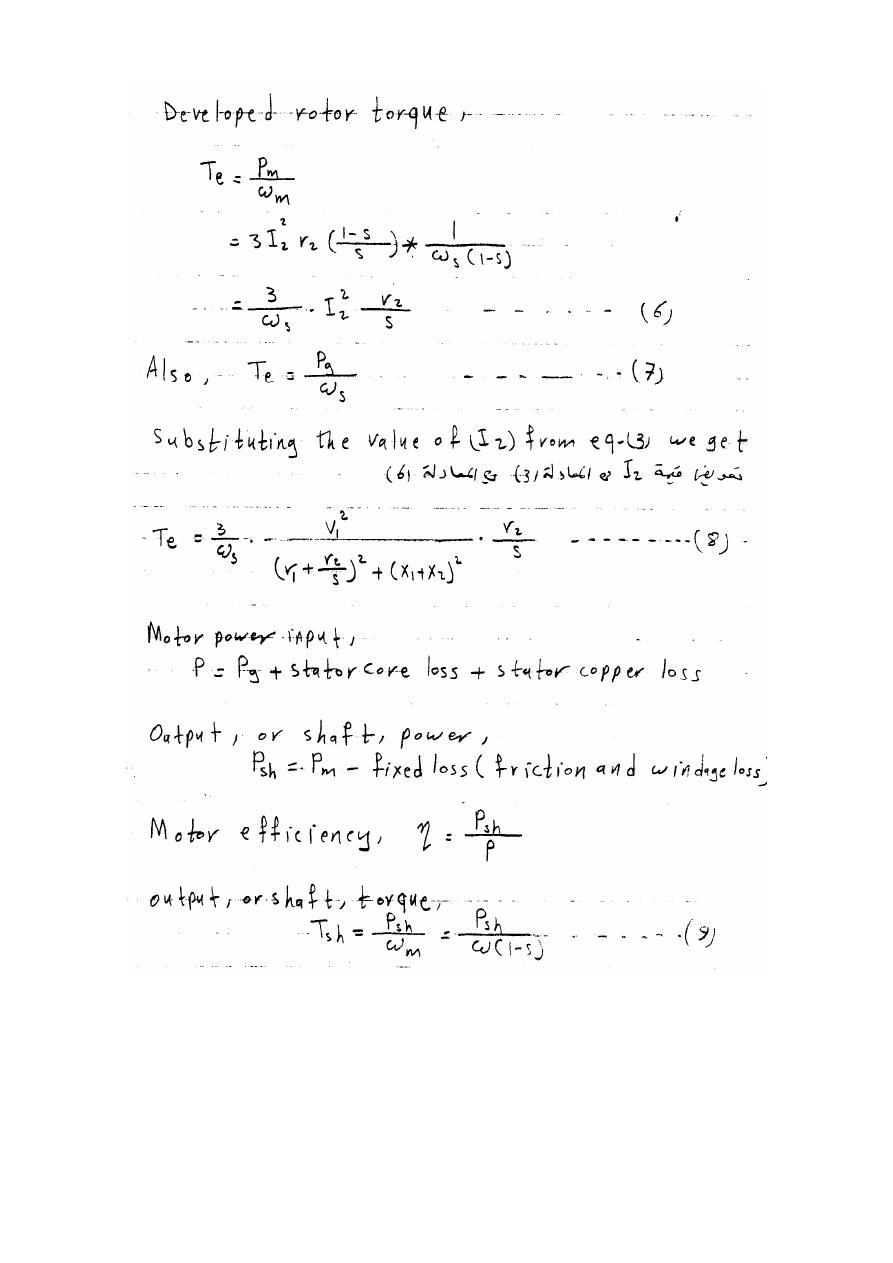 Developed rotor torque,
Te = Pm / ωm
= 3 I₂² r₂ ((1-s)/s) * 1 / (ωs (1-s))
= 3/ωs . I₂² r₂/s - - - - - - (6)
Also, Te = Pg / ωs - - - - - - (7)
Substituting the value of (I₂) from eq-(3) we get
تعويض قيمة I₂ من المعادلة (3) في المعادلة (6)
Te = 3/ωs . V₁² / ((r₁ + r₂/s)² + (X₁+X₂)²) . r₂/s - - - - - - - - - (8)
Motor power input,
P = Pg + stator core loss + stator copper loss
Output, or shaft, power,
Psh = Pm - fixed loss (friction and windage loss)
Motor efficiency, η = Psh / P
output, or shaft, torque,
Tsh = Psh / ωm = Psh / ω(1-s) - - - - - - (9)